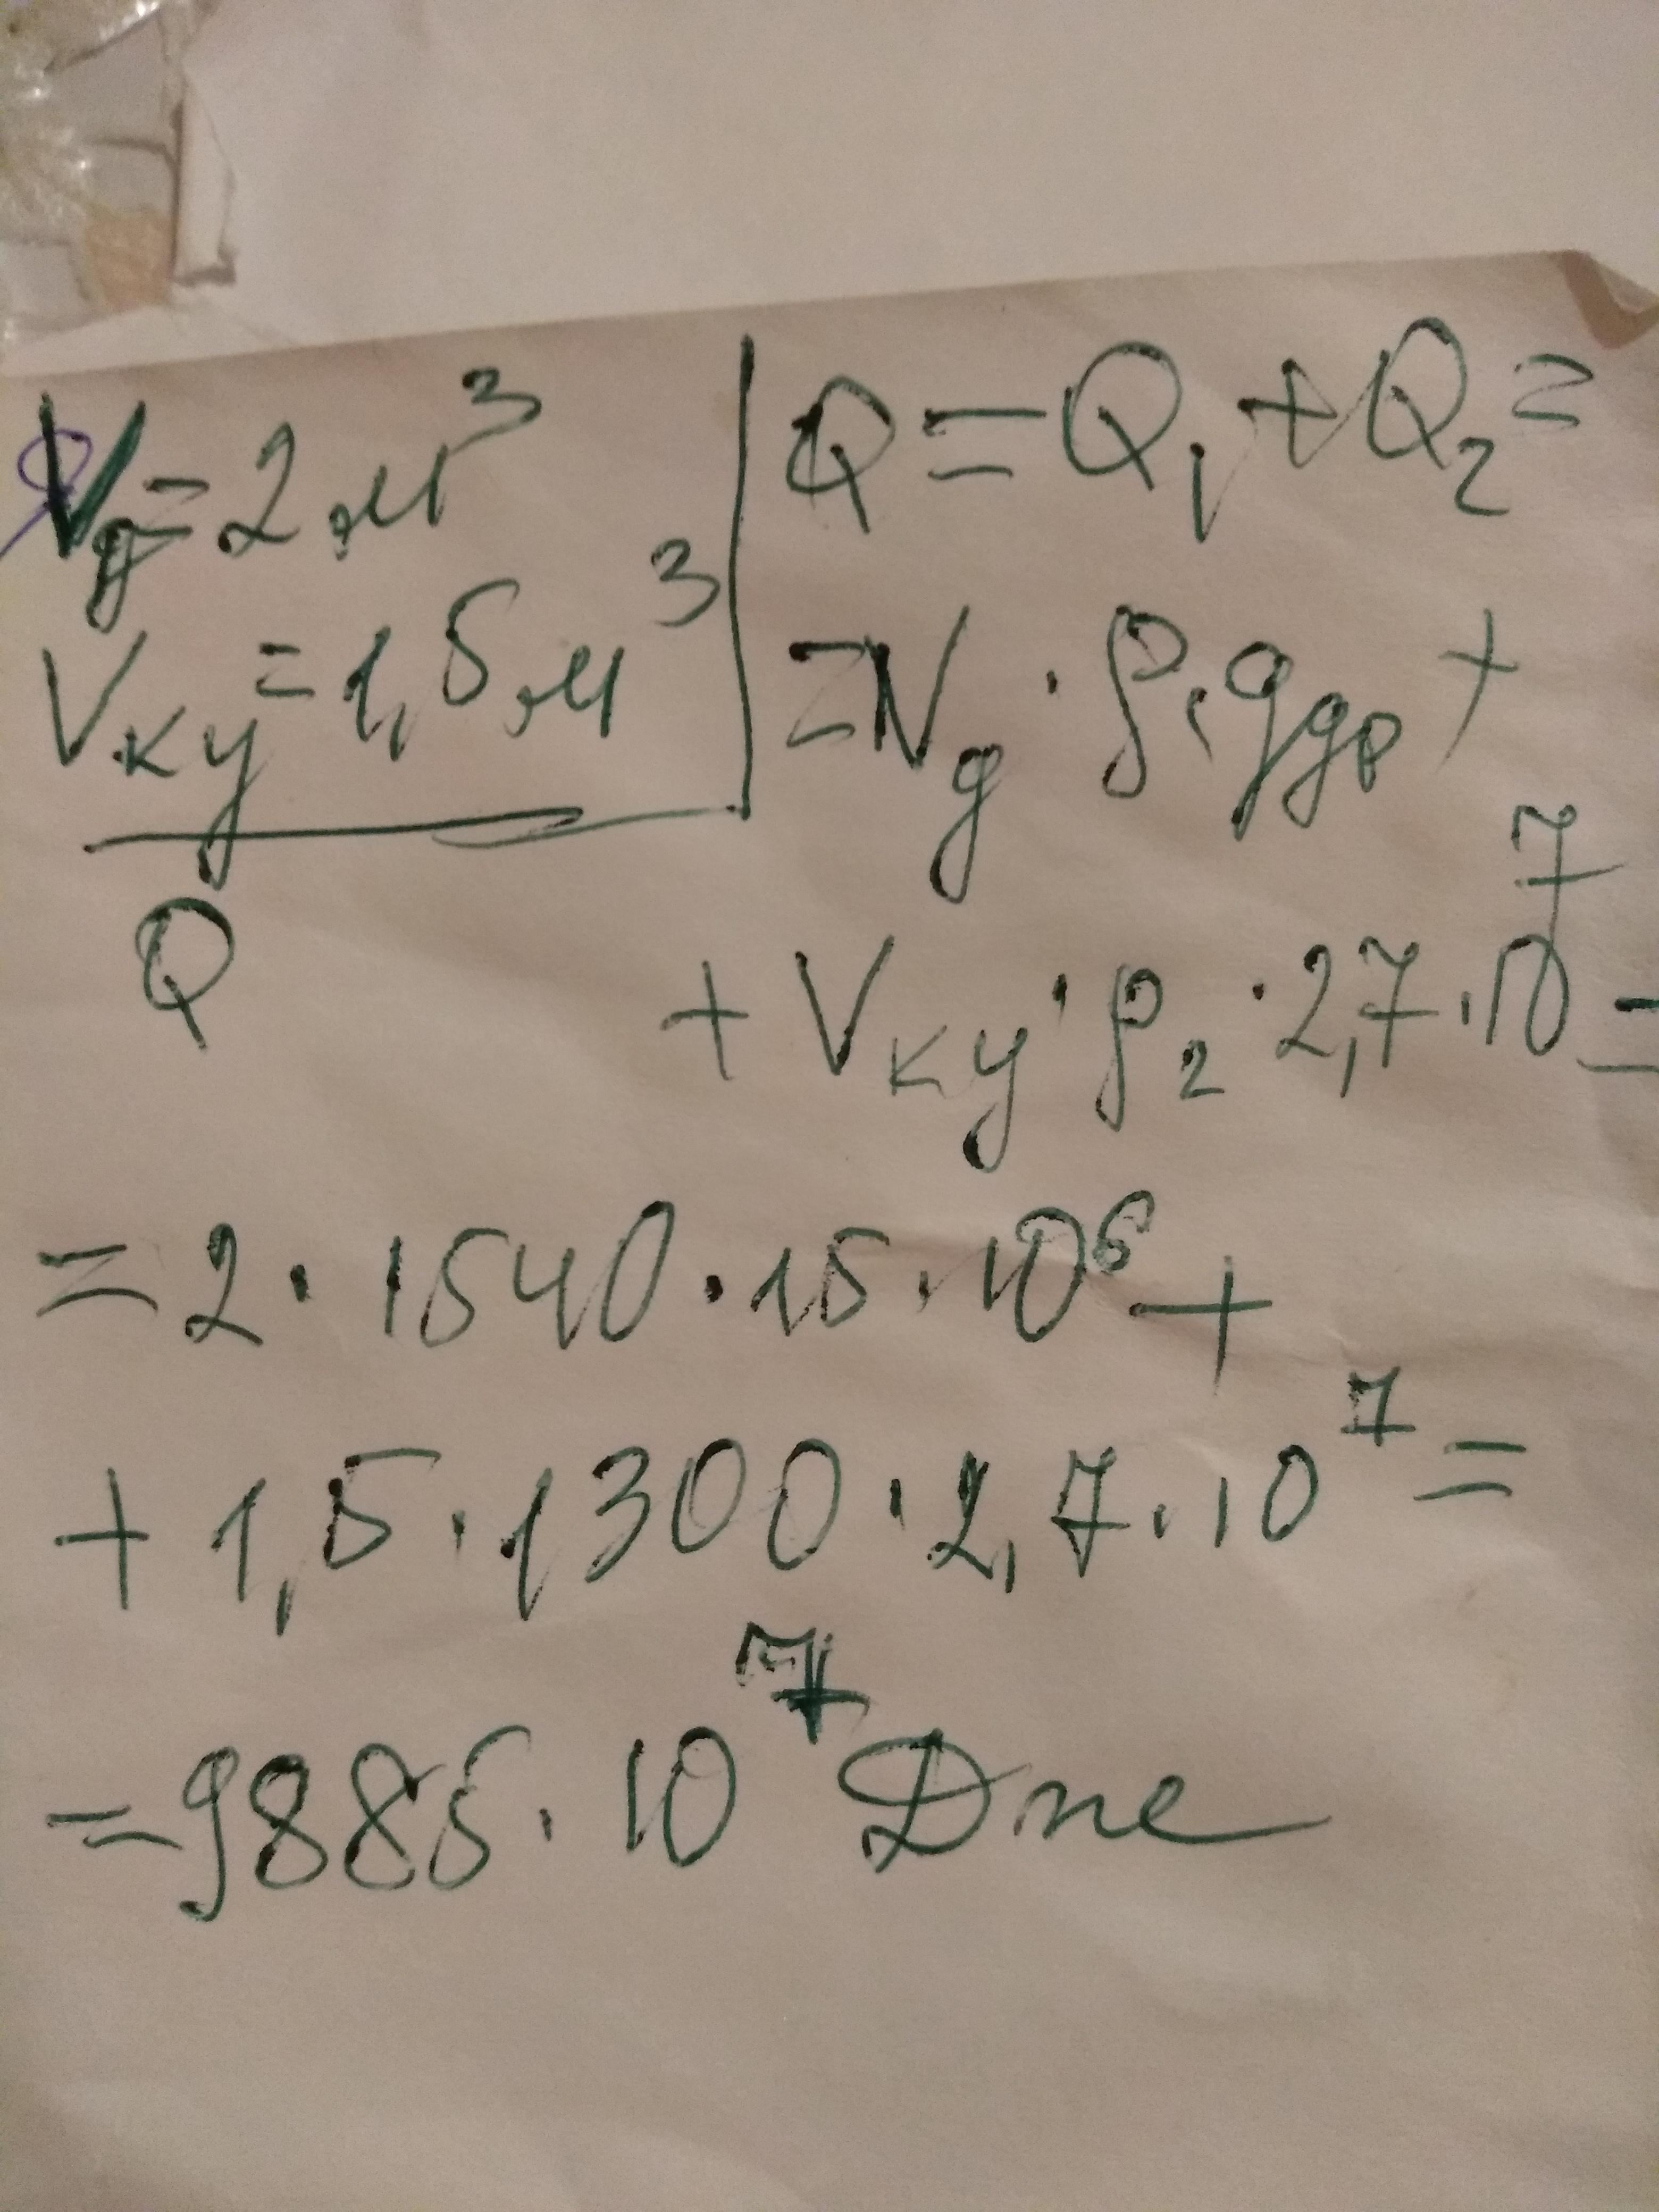 Vд = 2 м³
Vку = 1,5 м³
Q
Q = Q₁ + Q₂ =
= Vд · ρ₁ qдр +
+ Vку · ρ₂ · 2,7 · 10⁷ =
= 2 · 1540 · 15 · 10⁶ +
+ 1,5 · 1300 · 2,7 · 10⁷ =
= 9885 · 10⁷ Дже